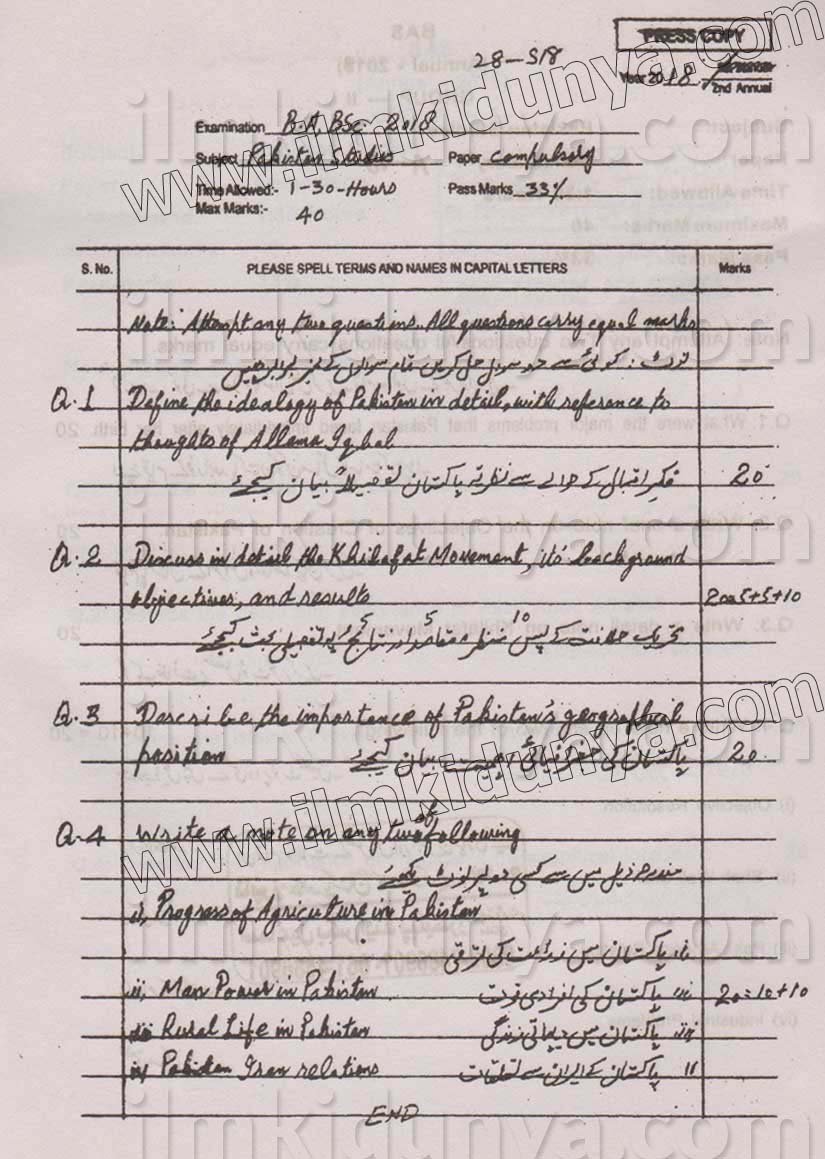 PRESS COPY
28-S18
Year 2018
2nd Annual
Examination B.A, BSc 2018
Subject Pakistan Studies Paper compulsory
Time Allowed:- 1-30-Hours Pass Marks 33%
Max Marks:- 40
S. No. PLEASE SPELL TERMS AND NAMES IN CAPITAL LETTERS Marks
Note: Attempt any two questions. All questions carry equal marks
نوٹ: کوئی سے دو سوال حل کریں تمام سوالوں کے نمبر برابر ہیں
Q.1 Define the idealogy of Pakistan in detail, with reference to
thoughts of Allama Iqbal.
فکرِ اقبال کے حوالے سے نظریہ پاکستان تفصیلاً بیان کیجئے 20
Q.2 Discuss in detail the Khilafat Movement, its' background
objectives, and results 20=5+5+10
تحریک خلافت کے پس منظر، مقاصد اور نتائج پر تفصیلی بحث کیجئے
Q.3 Describe the importance of Pakistan's geographical
position پاکستان کی جغرافیائی اہمیت بیان کیجئے 20
Q.4 Write a note on any two of following
مندرجہ ذیل میں سے کسی دو پر نوٹ لکھئے
i, Progress of Agriculture in Pakistan
پاکستان میں زراعت کی ترقی
ii, Man Power in Pakistan پاکستان کی افرادی قوت 20=10+10
iii Rural Life in Pakistan پاکستان میں دیہاتی زندگی
iv Pakistan Iran relations پاکستان کے ایران سے تعلقات
END
www.ilmkidunya.com
www.ilmkidunya.com
ilmkidunya.com
ilmkidunya.com
ilmkidunya.com
ilmkidunya.com
ilmkidunya.com
ilmkidunya.com